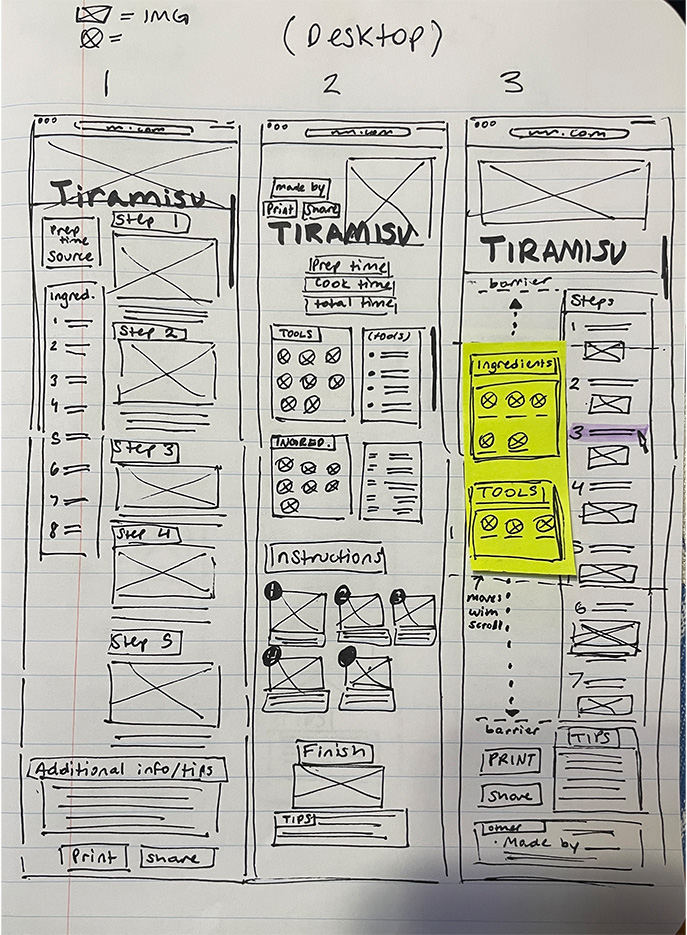 = IMG
=
(Desktop)
1
2
3
Tiramisu
Prep
time
Source
Ingred.
1
2
3
4
5
6
7
8
Step 1
Step 2
Step 3
Step 4
Step 5
Additional info/tips
Print
share
made by
Print
Share
TIRAMISU
Prep time
Cook time
total time
TOOLS
(tools)
INGRED.
Instructions
1
2
3
4
Finish
TIPS
TIRAMISU
barrier
Steps
1
2
3
4
5
6
7
Ingredients
TOOLS
moves
with
scroll
barrier
PRINT
Share
TIPS
other
· Made by